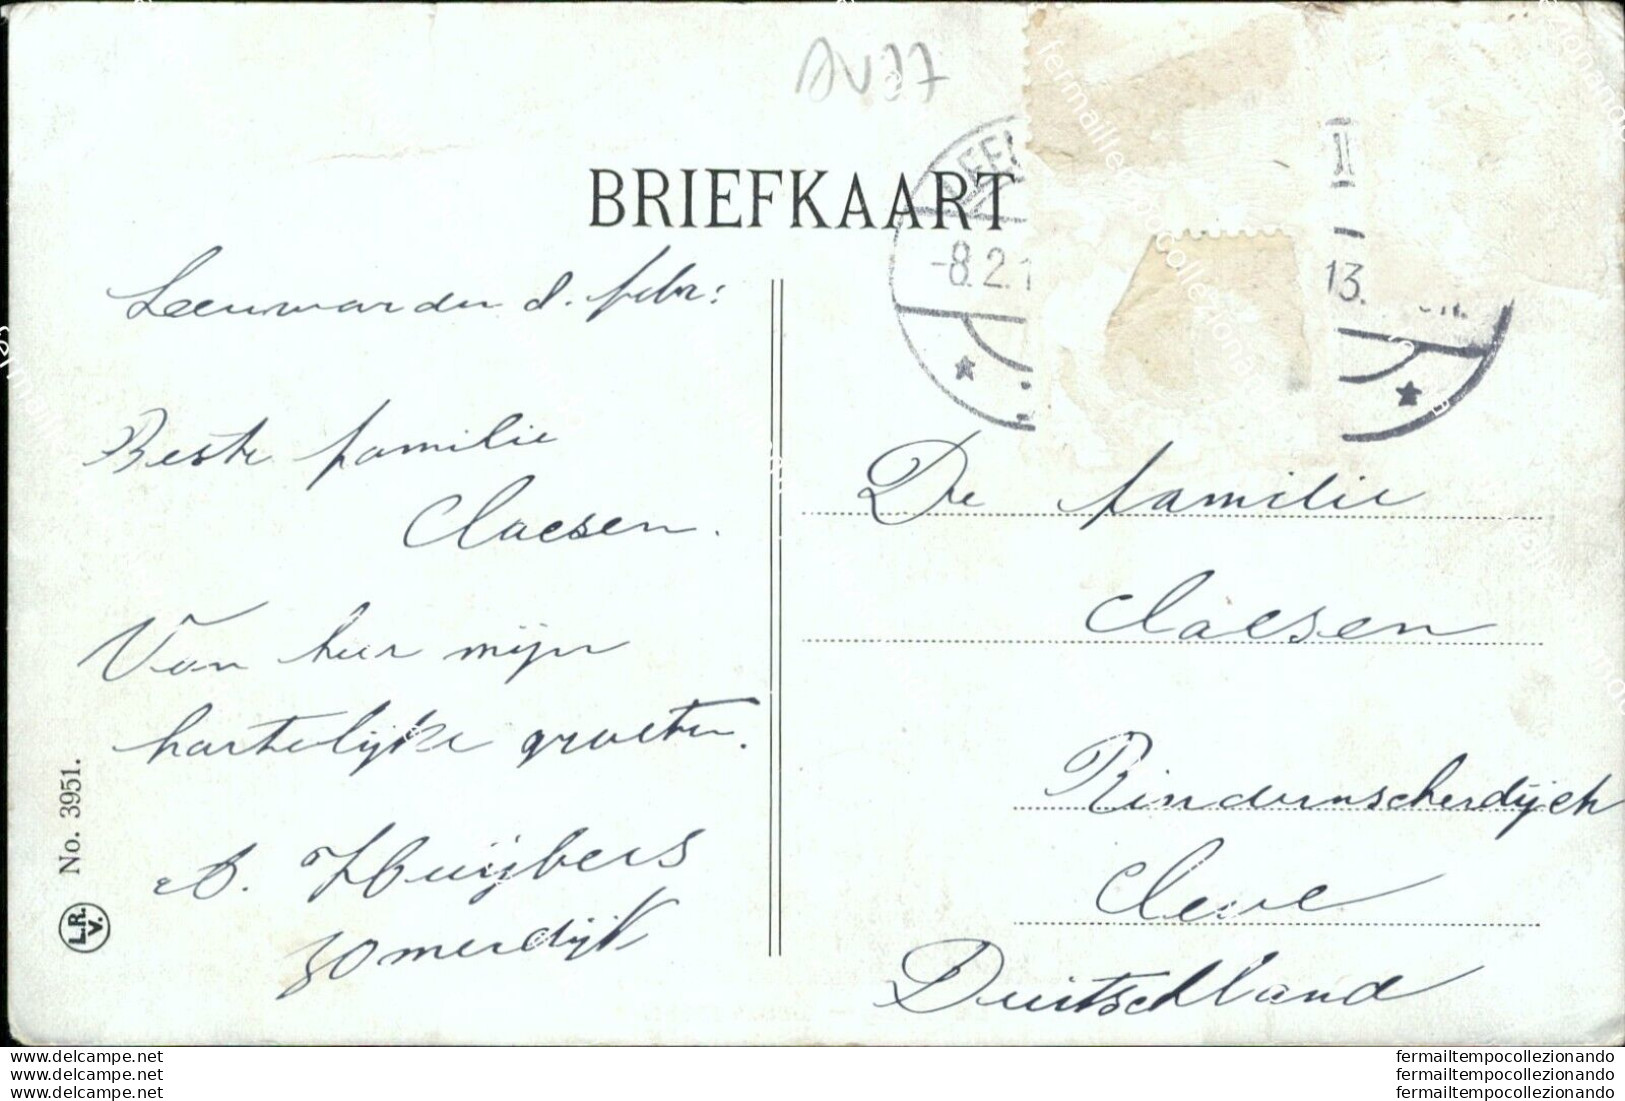 AV77
BRIEFKAART
LEEU
-8.2.1
13.
Leeuwarden 8. febr:
Beste familie
Claesen.
Van hier mijn
hartelijke groeten.
A. Huijbers
Zomerdijk
No. 3951.
L.R.
V.
De familie
Claesen
Rindernscherdijch
Cleve
Duitschland
www.delcampe.net
www.delcampe.net
www.delcampe.net
fermailtempocollezionando
fermailtempocollezionando
fermailtempocollezionando